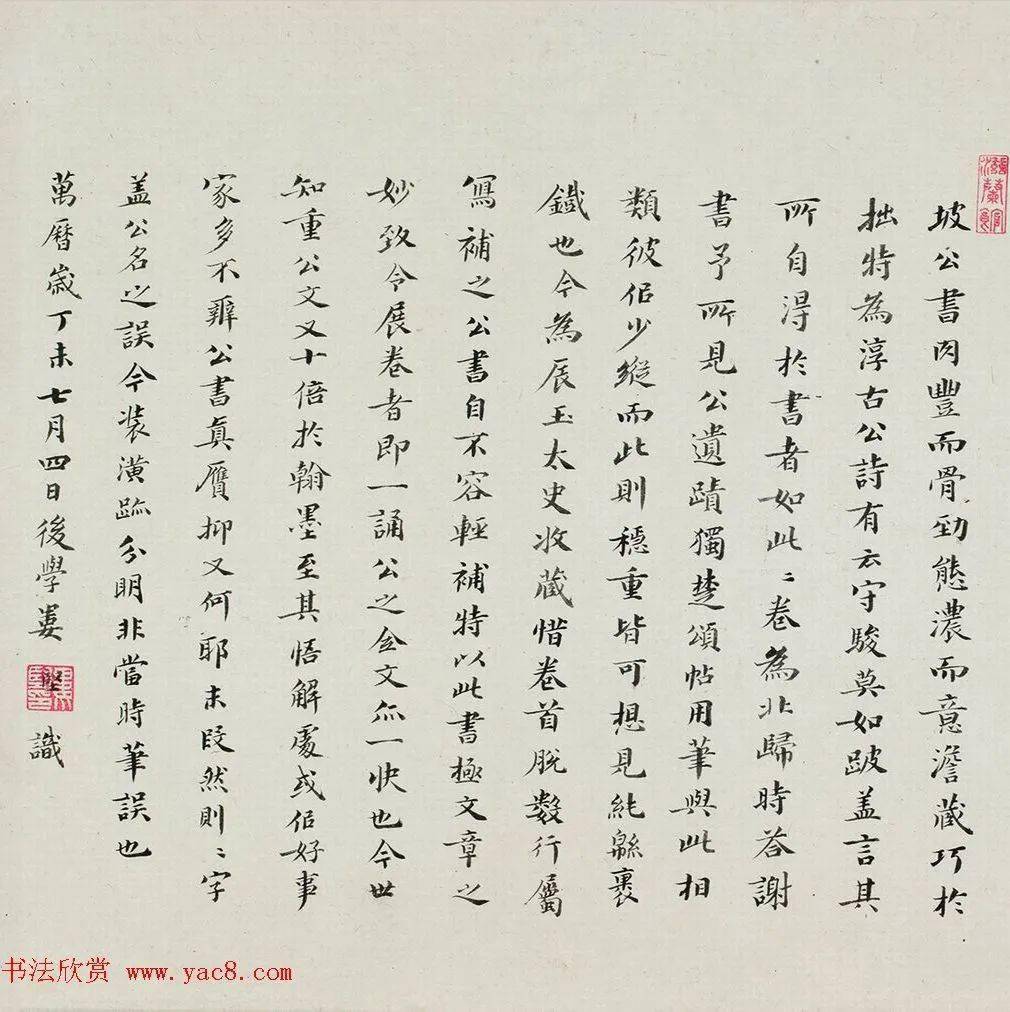 坡公書肉豐而骨勁態濃而意澹藏巧於
拙特為淳古公詩有云守駿莫如跛盖言其
所自得於書者如此〻卷為北歸時荅謝
書予所見公遺蹟獨楚頌帖用筆與此相
類彼佀少縱而此則穩重皆可想見純緜裹
鐵也今為辰玉太史收藏惜卷首脫數行屬
寫補之公書自不容輕補特以此書極文章之
妙致令展卷者即一誦公之全文亦一快也今世
知重公文又十倍於翰墨至其悟解處或佀好事
家多不辨公書真贋抑又何耶末段然則〻字
盖公名之誤今裝潢跡分明非當時筆誤也
萬曆歲丁未七月四日後學婁堅識
书法欣赏 www.yac8.com